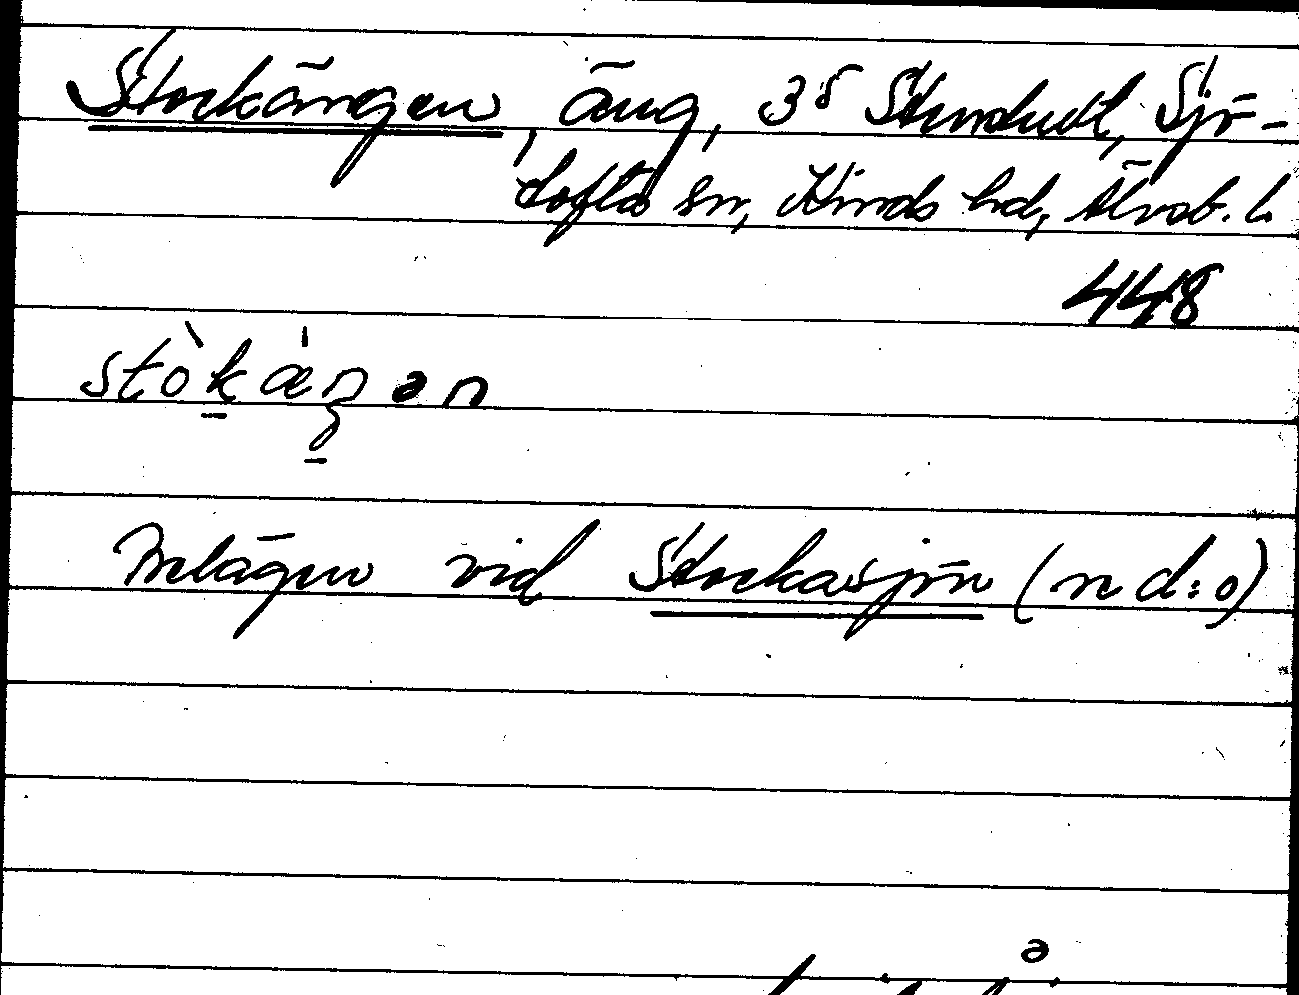 Stockängen, äng, 3 S Stendudt, Sjö-
tofta sn, Kinds hd, Älvsb. l.
448
stòkæ̀ŋən
Belägen vid Stockasjön (n d:o)